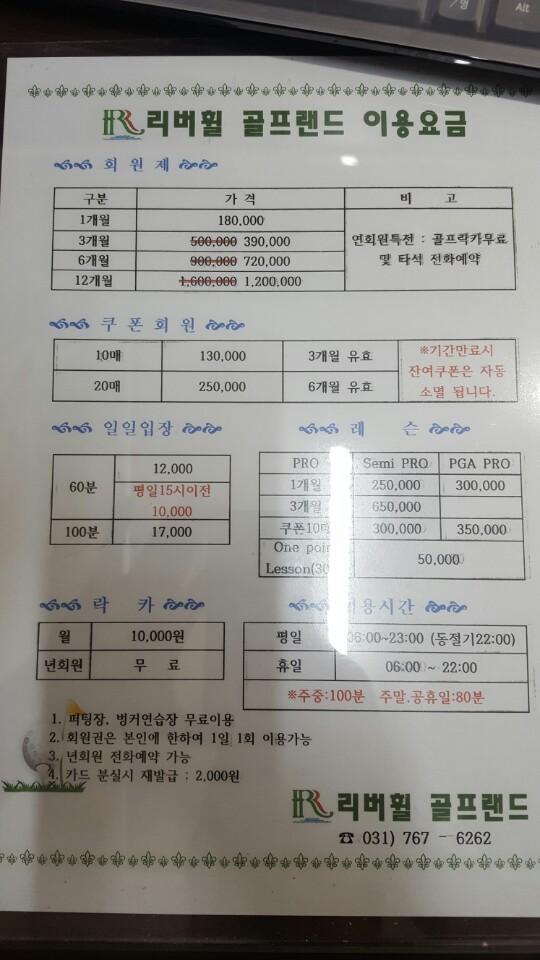 /명
Alt
리버힐 골프랜드 이용요금
회 원 제
구분 가 격 비 고
1개월 180,000
3개월 500,000 390,000
6개월 900,000 720,000
12개월 1,600,000 1,200,000
연회원특전 : 골프락카무료
및 타석 전화예약
쿠 폰 회 원
10매 130,000 3개월 유효
20매 250,000 6개월 유효
※기간만료시
잔여쿠폰은 자동
소멸 됩니다.
일일입장
60분 12,000
평일15시이전
10,000
100분 17,000
레 슨
PRO Semi PRO PGA PRO
1개월 250,000 300,000
3개월 650,000
쿠폰10 300,000 350,000
One
Lesson(30 50,000
락 카
월 10,000원
년회원 무 료
용시간
평일 06:00~23:00 (동절기22:00)
휴일 06:00 ~ 22:00
※주중:100분 주말,공휴일:80분
1. 퍼팅장, 벙커연습장 무료이용
2. 회원권은 본인에 한하여 1일 1회 이용가능
3. 년회원 전화예약 가능
4. 카드 분실시 재발급 : 2,000원
리버힐 골프랜드
☎ 031) 767 - 6262